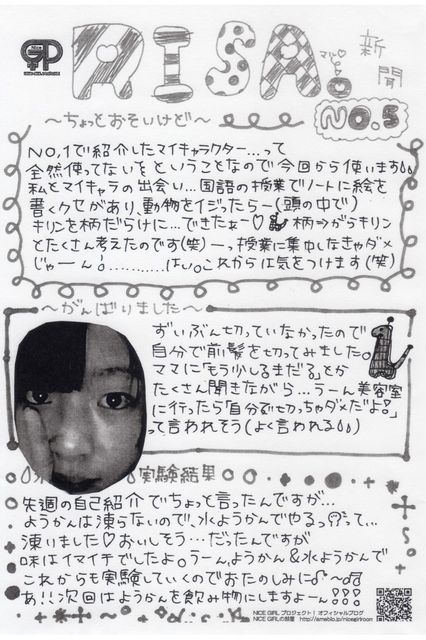 GP
RISA。
マジ♡
新聞
NO.5
〜ちょっとおそいけど〜
NO,1で紹介したマイキャラクター...って
全然使ってないなということなので今回から使います
私とマイキャラの出会い...国語の授業でノートに絵を
書くクセがあり、動物をイジったらー(頭の中で)
キリンを柄だらけに...できたぁー♡ 柄⇒がらキリン
とたくさん考えたのです(笑)ーっ授業に集中しなきゃダメ
じゃーん!..........はい。これからは気をつけます(笑)
〜がんばりました〜
ずいぶん切っていなかったので
自分で前髪を切ってみました。
ママに「もう少しるまだる」とか
たくさん聞きながら...うーん美容室
に行ったら「自分で切っちゃダメだよ!」
って言われそう(よく言われる)
実験結果
先週の自己紹介でちょっと言ったんですが...
ようかんは凍らないので、水ようかんでやるっって...
凍いました♡おいしそう...だったんですが
味はイマイチでしたよ。うーん、ようかん&水ようかんで
これからも実験していくのでおたのしみに♪〜
あ!!次回はようかんを飲み物にしますよー!!!
NICE GIRLプロジェクト! オフィシャルブログ
NICE GIRLの部屋 http://ameblo.jp/nicegirlroom